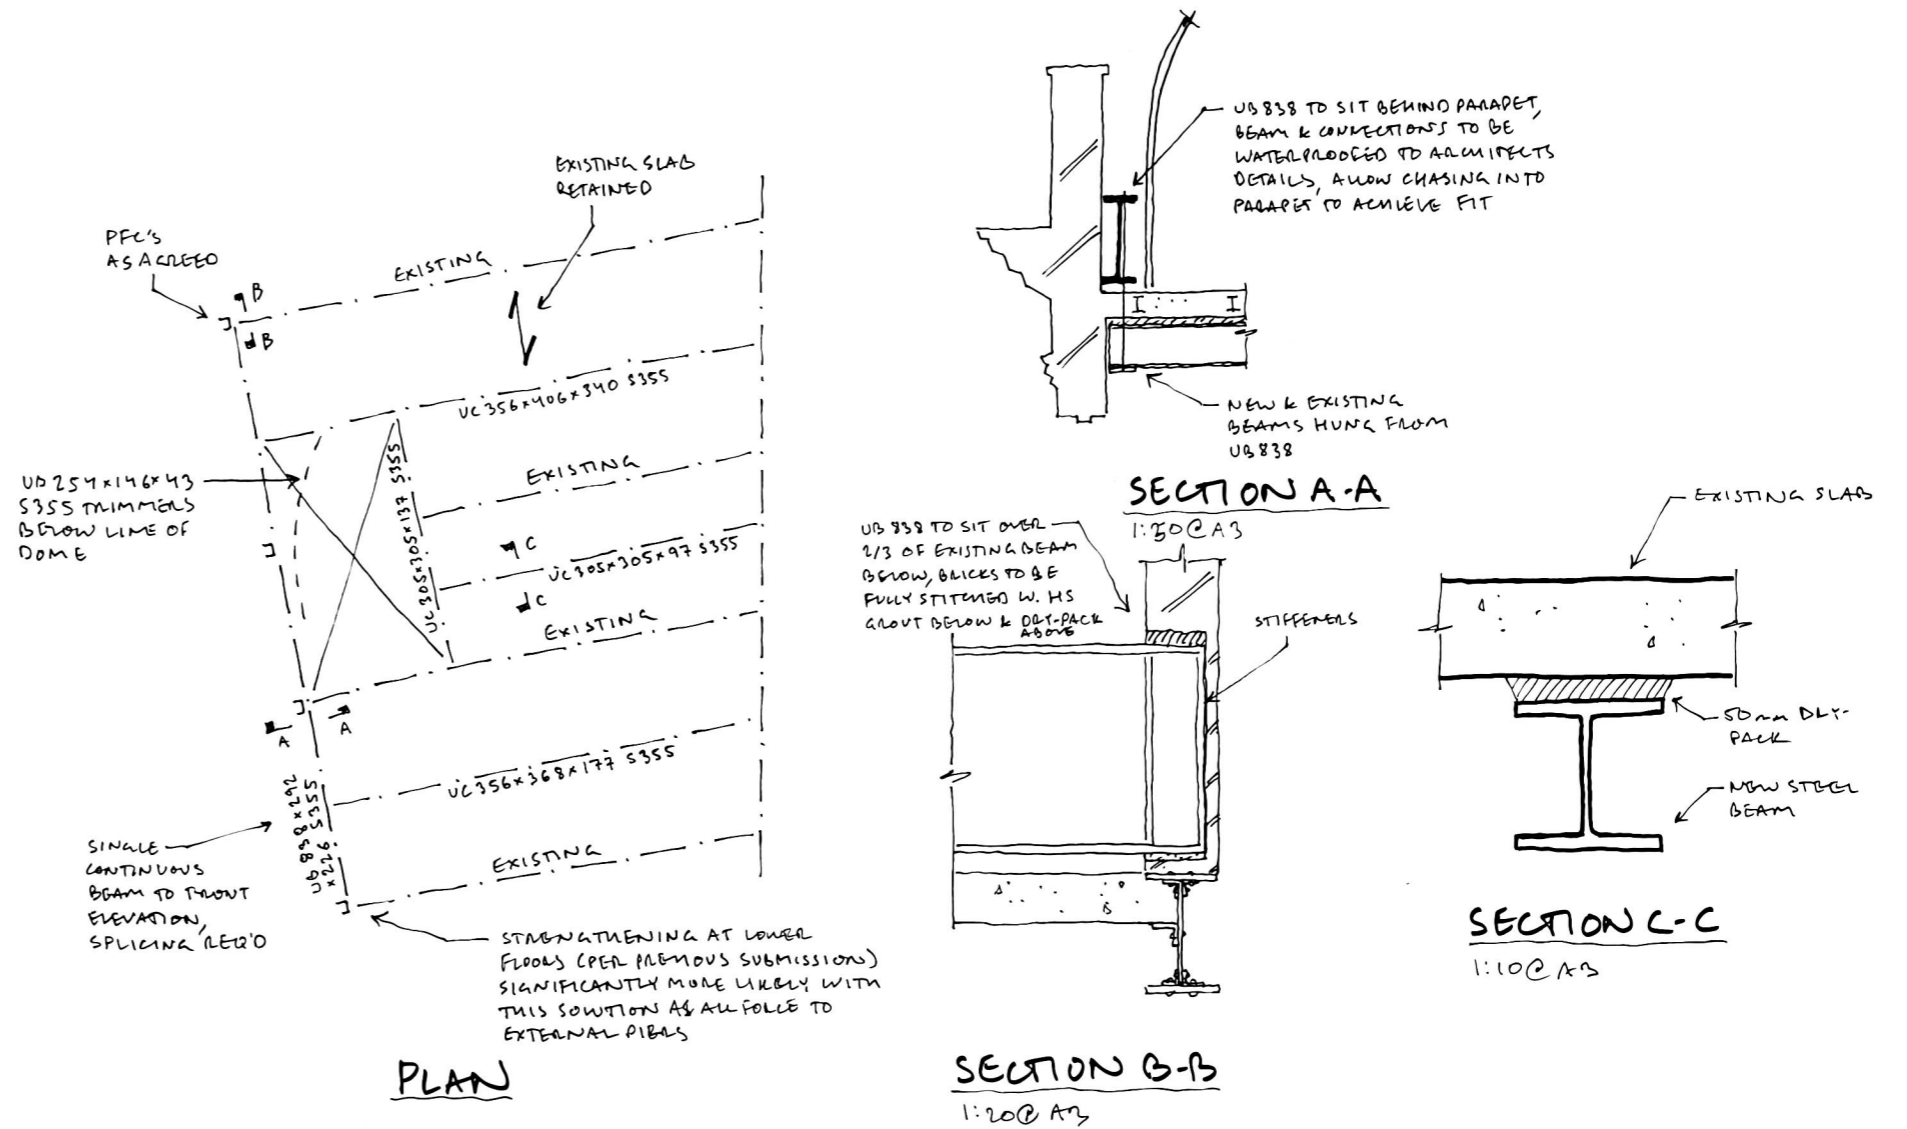 EXISTING SLAB
RETAINED
PFC'S
AS AGREED
B
B
EXISTING
UC 356×406×340 S355
UB 254×146×43
S355 TRIMMERS
BELOW LINE OF
DOME
UC 305×305×137 S355
EXISTING
C
UC 305×305×97 S355
C
EXISTING
A
A
UC 356×368×177 S355
UB 838×292
×226 S355
SINGLE
CONTINUOUS
BEAM TO FRONT
ELEVATION,
SPLICING REQ'D
EXISTING
STRENGTHENING AT LOWER
FLOORS (PER PREVIOUS SUBMISSION)
SIGNIFICANTLY MORE LIKELY WITH
THIS SOLUTION AS ALL FORCE TO
EXTERNAL PIERS
PLAN
UB 838 TO SIT BEHIND PARAPET,
BEAM & CONNECTIONS TO BE
WATERPROOFED TO ARCHITECTS
DETAILS, ALLOW CHASING INTO
PARAPET TO ACHIEVE FIT
NEW & EXISTING
BEAMS HUNG FROM
UB 838
SECTION A-A
@A3
UB 838 TO SIT OVER
2/3 OF EXISTING BEAM
BELOW, BRICKS TO BE
FULLY STITCHED W. HS
GROUT BELOW & DRY-PACK
ABOVE
STIFFENERS
SECTION B-B
1:20@ A3
EXISTING SLAB
50mm DRY-
PACK
NEW STEEL
BEAM
SECTION C-C
1:10@ A3